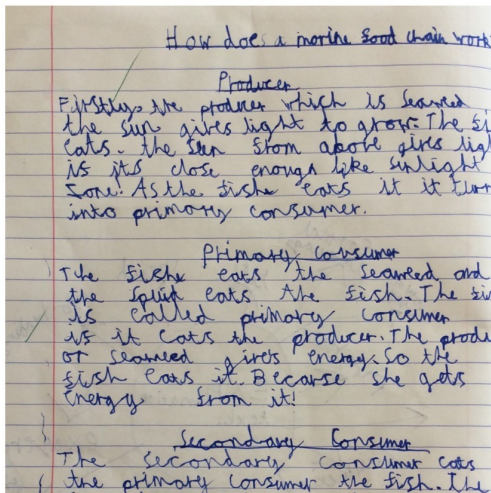 How does a marine food chain work
Producer
Firstly the producer which is seaweed
the sun gives light to grow. The fi
eats. the sun from above gives ligh
is its close enough like sunlight
zone! As the fishe eats it it turn
into primary consumer.
Primary Consumer
The fishe eats the seaweed and
the squid eats the fish. The fi
is called primary consumer
is it eats the producer. The produ
or seaweed gives energy. So the
fish eats it. Because she gets
energy from it!
Secondary Consumer
The secondary consumer eats
the primary consumer the fish. The